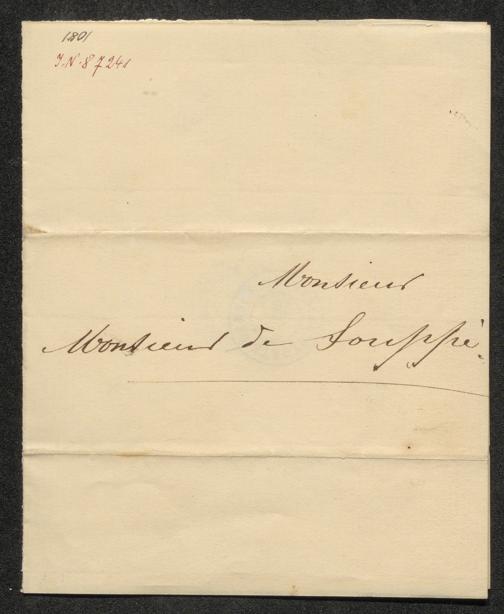 1801
I.N. 87241
Monsieur
Monsieur de Souppé.